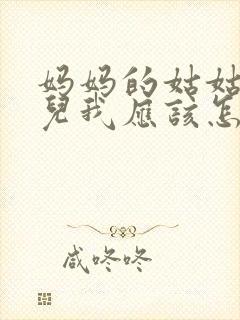 妈妈的姑姑
儿我应该怎
咸咚咚